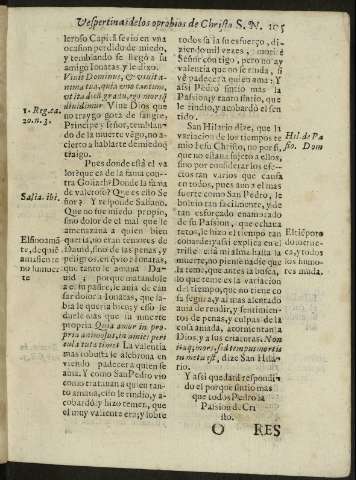 Vespertina; de los oprobios de Christo S. N. 105
leroso Capitã se vio en vna
ocasion perdido de miedo,
y temblando se llegó a su
amigo Ionatas, y le dixo.
Viuit Dominus, & viuit a-
nima tua, quia vno tantum,
vt ita dicã gradu, ego morsq́;
diuidimur. Viue Dios que
no traygo gota de sangre,
Principe y señor, temblan-
do de la muerte vẽgo, no a-
cierto a hablarte de miedo q̃
traigo.
1. Reg. ca.
20. n. 3.
Pues donde està el va
lor? que es la fama contra
Goliath? Donde la fama
de valeroso? Que es esto Se
ñor? Y responde Saluiano.
Que no fue miedo propio,
sino dolor de el mal que le
amenazaua a quien bien
queria, no eran temores de
Dauid, sino de tus penas, y
peligros, en q̃ vio a Ionatas,
que tanto le amaua Da-
uid; porque matandole
a su padre, le auia de cau
sar dolor a Ionatas, que sa-
bia le queria bien; y esto le
duele mas que la muerte
propria Quia amor in pro-
prijs animosus, in amici peri
culis totus timet. La valentia
mas robusta se acebrona en
viendo padecer a quien se
ama. Y como San Pedro vio
como tratauan a quien tan-
to amaua, ciõ le rindio, y a-
cobardò; y hizo temer, que
el muy valiente era; y sobre
Salia. ibi.
El sino amã
te, de que
ama siente
no su muer
te.
todos sa la su esfuerço, di-
ziendo mil vezes; moriré
Señor cõntigo, pero no ay
valentia que no se rinda, si
vè padecer a quien mas ama. Y
assi Pedro sintio mas la
Passion, y tanto sintio, que
le rindio, y acobardò el sen
tido.
San Hilario dize, que la
variacion de los tiempos te
mio este su Christo, no por si,
que no estaua sujeto a ellos,
sino por considerar los efe-
ctos tan varios que causa
en todos, pues aun a el mas
fuerte como San Pedro, le
boluio tan facilmente, y de
tan esforçado enamorado
de su Passion, que echaua
retos, le hizo el tiempo tan
cobarde: y assi explica en el
triste està mi alma hasta la
muerte, no pienses dize que
la teme, que antes la busca,
lo que teme es la variacion
del tiempo, que no tiene co
sa segura, y al mas alentado
auia de rendir, y sentimien-
tos de penas, y culpas de la
cosa amada, atormentan a
Dios, y a las criaturas. Non
itaq́; mors, sed tempus mortis
in metu est, dize San Hila-
rio.
Y assi quedarà respondi
do el porque sintio mas
que todos Pedro la
Passion de Cri
sto.
Hil. de Pa
sio. Dom
El tiẽporo
do lo true-
ca, y todos
los humo-
res muda.
O RES